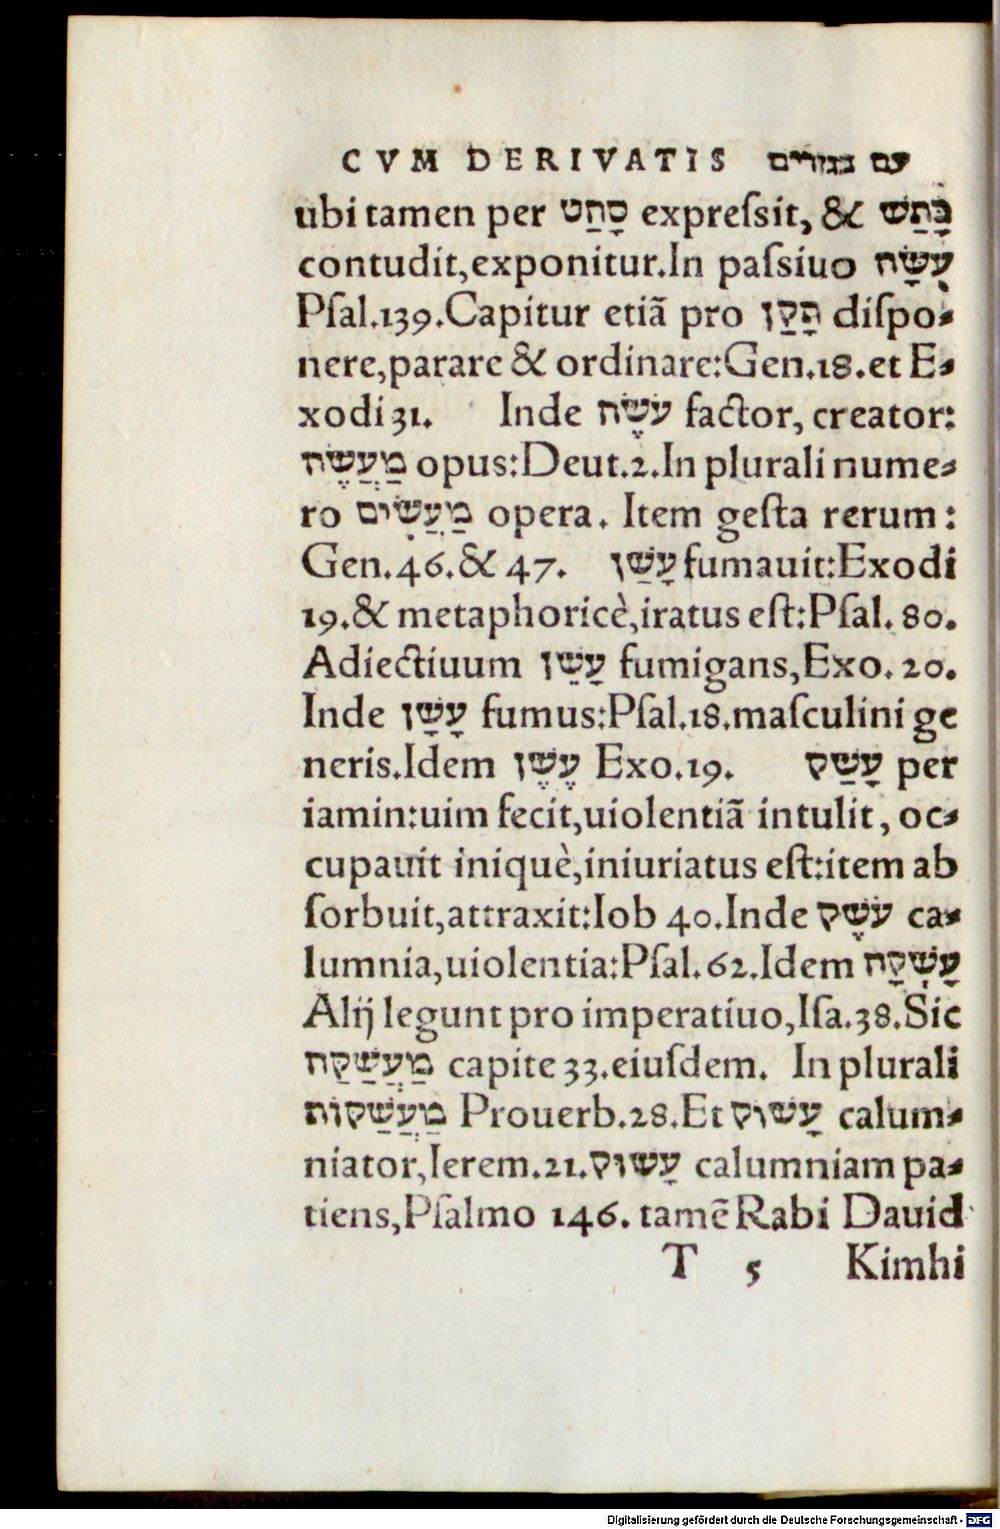 CVM DERIVATIS עם בגזורים
ubi tamen per סָחַט expreſsit, & כָּתַשׁ
contudit,exponitur.In paſsiuo עֻשָּׂה
Pſal.139.Capitur etiã pro תָּקַן diſpo⸗
nere,parare & ordinare:Gen.18.et E⸗
xodi 31. Inde עֹשֶׂה factor, creator:
מַעֲשֶׂה opus:Deut.2.In plurali nume⸗
ro מַעֲשִׂים opera. Item geſta rerum:
Gen.46.& 47. עָשַׁן fumauit:Exodi
19.& metaphoricè,iratus eſt:Pſal. 80.
Adiectiuum עָשֵׁן fumigans,Exo. 20.
Inde עָשָׁן fumus:Pſal.18.maſculini ge
neris.Idem עֶשֶׁן Exo.19. עָשַׁק per
iamin:uim fecit,uiolentiã intulit, oc⸗
cupauit iniquè,iniuriatus eſt:item ab
ſorbuit,attraxit:Iob 40.Inde עֹשֶׁק ca⸗
lumnia,uiolentia:Pſal.62.Idem עָשְׁקָה
Alij legunt pro imperatiuo,Iſa.38.Sic
מַעֲשַׁקַּה capite 33.eiuſdem. In plurali
מַעֲשַׁקּוֹת Prouerb.28.Et עָשׁוֹק calum⸗
niator,Ierem.21.עָשׁוּק calumniam pa⸗
tiens,Pſalmo 146. tamẽ Rabi Dauid
T 5 Kimhi
Digitalisierung gefördert durch die Deutsche Forschungsgemeinschaft - DFG